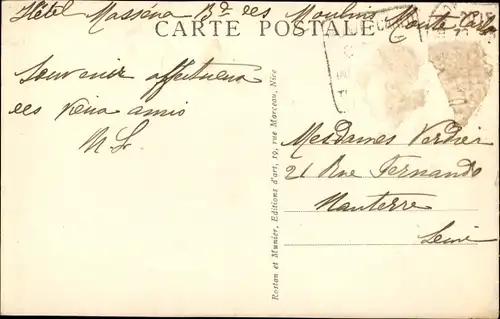 Hôtel Masséna Bd des Moulins Monte Carlo
CARTE POSTALE
Souvenir affectueux
des vieux amis
Mesdames Verdier
21 Rue Fernando
Nanterre
Seine
Rostan et Munier, Editions d'art, 19, rue Marceau, Nice